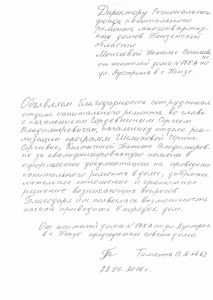 Директору Регионального
фонда капитального
ремонта многоквартир-
ных домов Пензенской
области
от жителей дома №188А по
ул. Аустрина в г. Пензе.
Объявляем благодарность сотрудникам
отдела капитального ремонта во главе
с начальником Сергеем
Владимировичем, начальнику отдела
Ириной
Сергеевне, Татьяне Владимиров-
не за квалифицированную помощь в
оформлении документации на проведение
капитального ремонта в доме, доброже-
лательное отношение и грамотное
решение возникающих вопросов.
Благодаря им появилась возможность
начать приводить в порядок дом.
От жителей дома №188А по ул. Аустрина
в г. Пензе председатель совета дома
22.06.2016г.